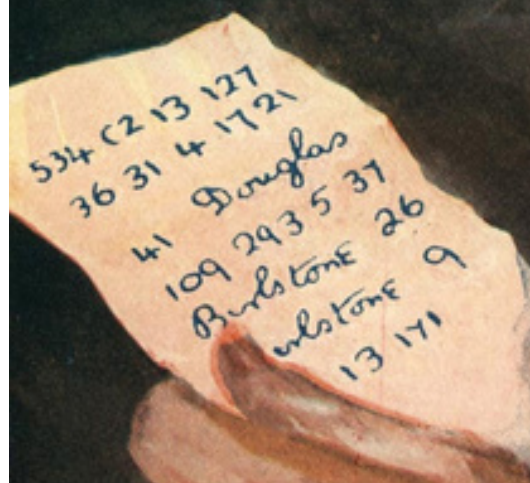 534 C2 13 127
36 31 4 17 21
41 Douglas
109 293 5 37
Birlstone 26
rlstone 9
13 171